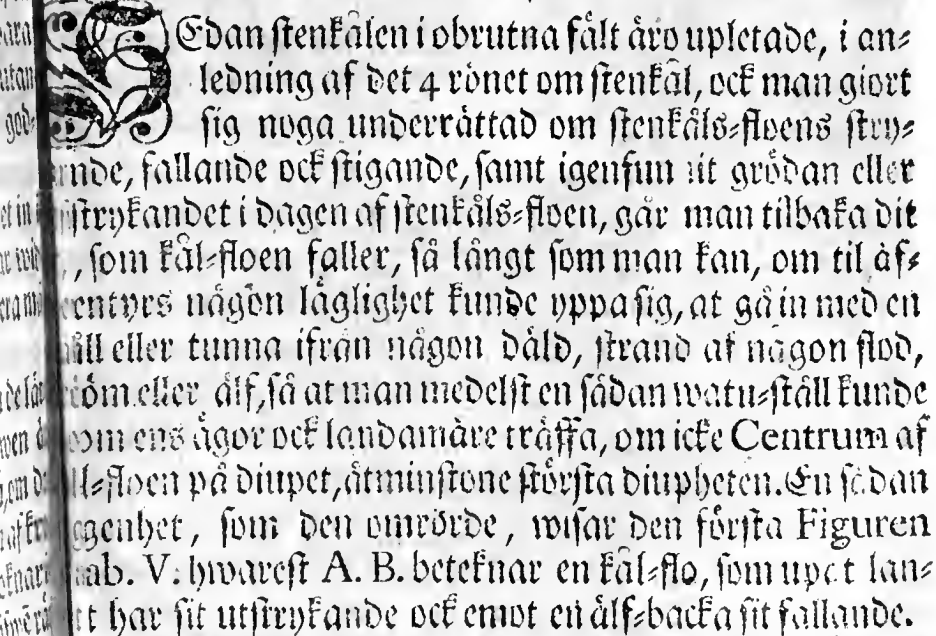 SEdan stenkålen i obrutna fålt åro upletade, i an⸗
ledning af det 4 rönet om stenkål, ock man giort
sig noga underråttad om stenkåls⸗floens stry⸗
ande, fallande ock stigande, samt igenfun it grödan eller
strykandet i dagen af stenkåls⸗floen, går man tilbaka dit
, som kål⸗floen faller, så långt som man kan, om til åf⸗
entyrs någon låglighet kunde yppa sig, at gå in med en
ståll eller tunna ifrån någon dåld, strand af någon flod,
ström eller ålf, så at man medelst en sådan watu⸗ståll kunde
som ens ågor ock landamåre tråffa, om icke Centrum af
kål⸗floen på diupet, åtminstone största diupheten. En sådan
ågenhet, som den omrörde, wisar den första Figuren
Tab. V. hwarest A. B. beteknar en kål⸗flo, som upåt lan⸗
et har sit utstrykande ock emot en ålf⸗backa sit fallande.